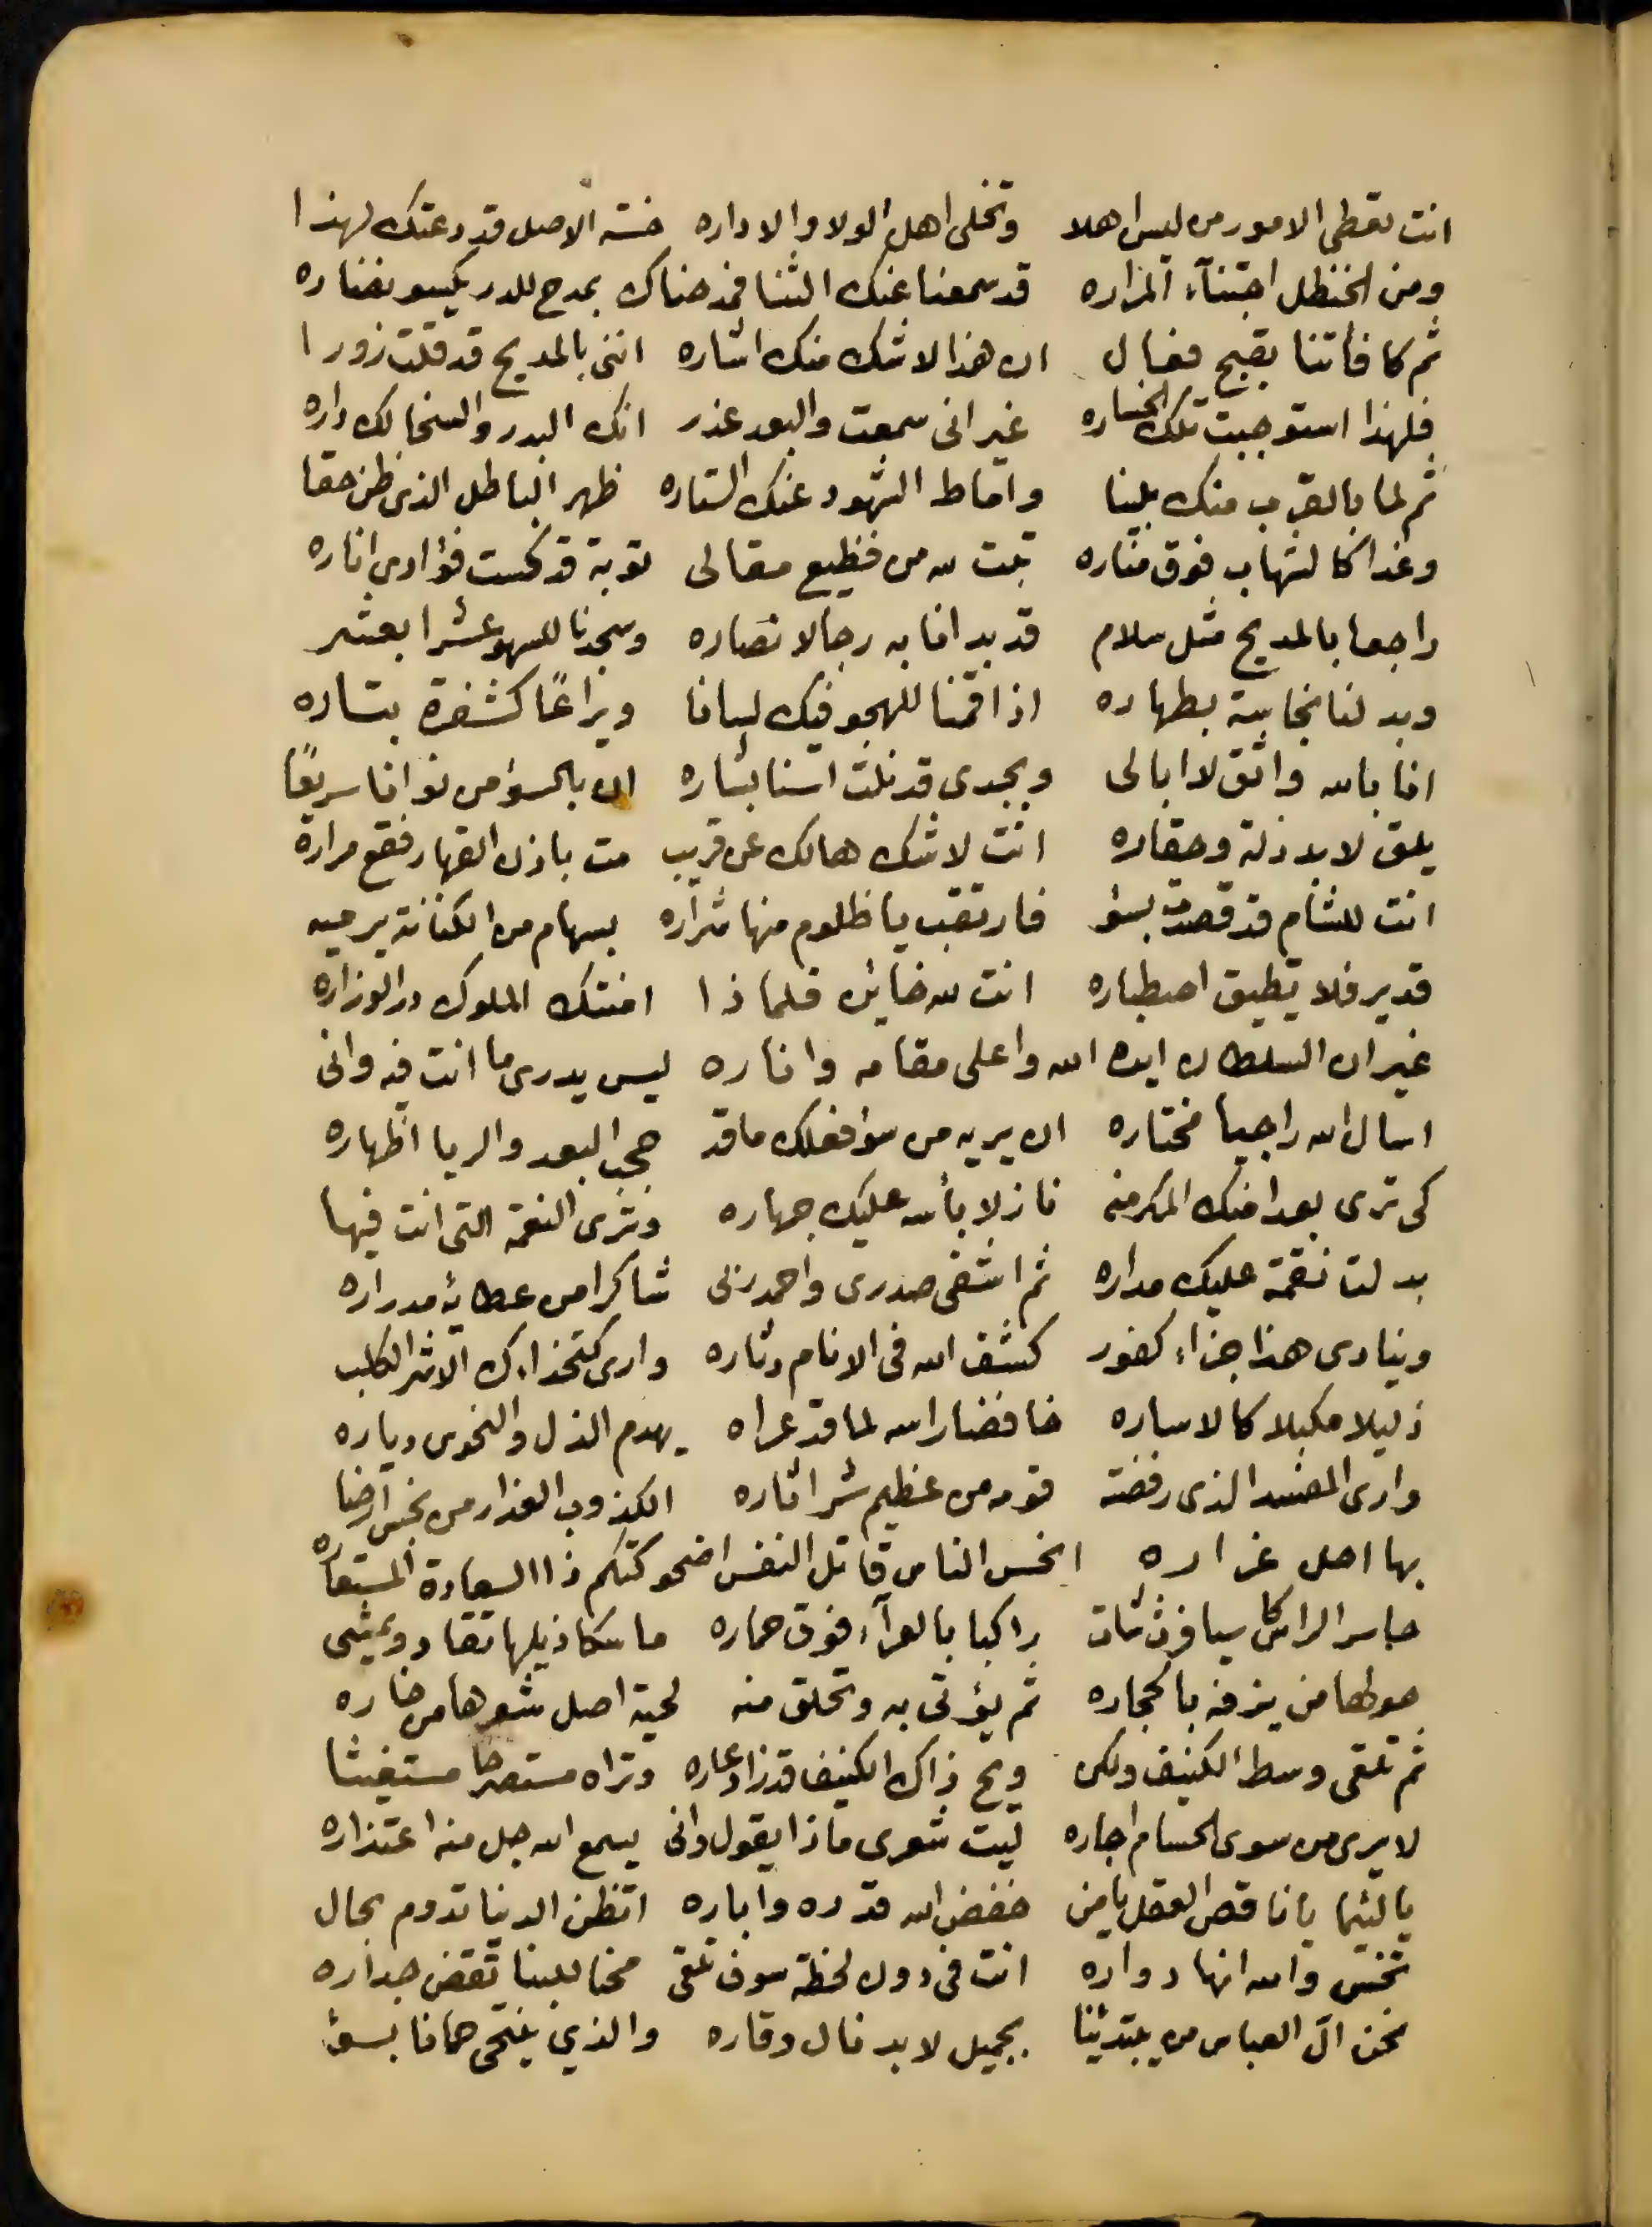 انت تعطي الامور من ليس اهلا وتخلى اهل الولا والاداره خسة الاصل قد دعتك لهذا
ومن الحنظل اجتناء المراره قد سمعنا عنك الثنا فمدحناك بمدح للدر يكسو نضاره
ثم كافأتنا بقبح فعال ان هذا لا شك منك اشاره انني بالمديح قد قلت زورا
فلهذا استوجبت تلك الخساره غير انى سمعت والبعد عذر انك البدر والسخا لك داره
ثم لما بالقرب منك بلينا واماط الشهود عنك الستاره ظهر الباطل الذى ظن حقا
وغدا كالشهاب فوق مناره تبت لله من فظيع مقالى توبة قد كست فؤادي اناره
راجعا بالمديح مثل سلام قد بدانا به رجالا نصاره وسجدنا للسهو عشرا بعشر
وبدلنا نجاسة بطهاره اذ اقمنا للهجو فيك لسانا ويراعًا كشفرة بتاره
انا بالله واثق لا ابالى وبجدى قد نلت اسنا بشاره ان بالسؤ من نوانا سريعًا
يلق لا بد ذلة وحقاره انت لا شك هالك عن قريب مت باذن القهار فقع مرارة
انت للشام قد قصدت بسؤ فارتقب يا ظلوم منها شراره بسهام من الكنانة يرميه
قدير فلا تطيق اصطباره انت لله خاين فلماذا امنتك الملوك در الوزاره
غير ان السلطان ايده الله واعلى مقامه واناره ليس يدرى ما انت فيه وانى
اسال الله راجيا مختاره ان يريه من سؤ فعلك ما قد حجب البعد والريا اظهاره
كى ترى بعد امنك المكر منه نازلا بأسه عليك جهاره وترى النعمة التى انت فيها
بدلت نقمة عليك مداره ثم اشفى صدرى واحمد ربى شاكرا من عطائه مدراره
وينادى هذا جزاء كفور كشف الله فى الانام دثاره وارى كتخداءك الاشر الكلب
ذليلا مكبلا كالاساره خافضا راسه لما قد عراه يهدم الذل والنحوس دياره
وارى المفسد الذى رفضته قومه من عظيم شر اثاره الكذوب الغدار من نجس ارضا
بها اهل غداره انحس الناس قاتل النفس اضحو كتكم ذا السعادة المستعاره
حاسر الراس كاسيا فرث شاة راكبا بالعراء فوق حماره ماسكا ذيلها تقاد ويمشى
حولها من يزفه بالحجاره ثم يؤتى به وتحلق منه لحية اصل شعرها من خاره
ثم تلقى وسط الكنيف ولكن ويح ذاك الكنيف قد زاد عاره وتراه مستصرخا مستغيثا
لا يرى من سوى الحسام اجاره ليت شعرى ماذا يقول وانى يسمع الله جل منه اعتذاره
يا لئيما يا ناقص العقل يا من خفض الله قدره واباره اتظن الدنيا تدوم بحال
تخس والله انها دواره انت فى دون لحظة سوف تلقى للبنا تقض جداره
نحن آل العباس من يبتدئنا بجميل لا بد نال وقاره والذي ينتحى حمانا بسؤ